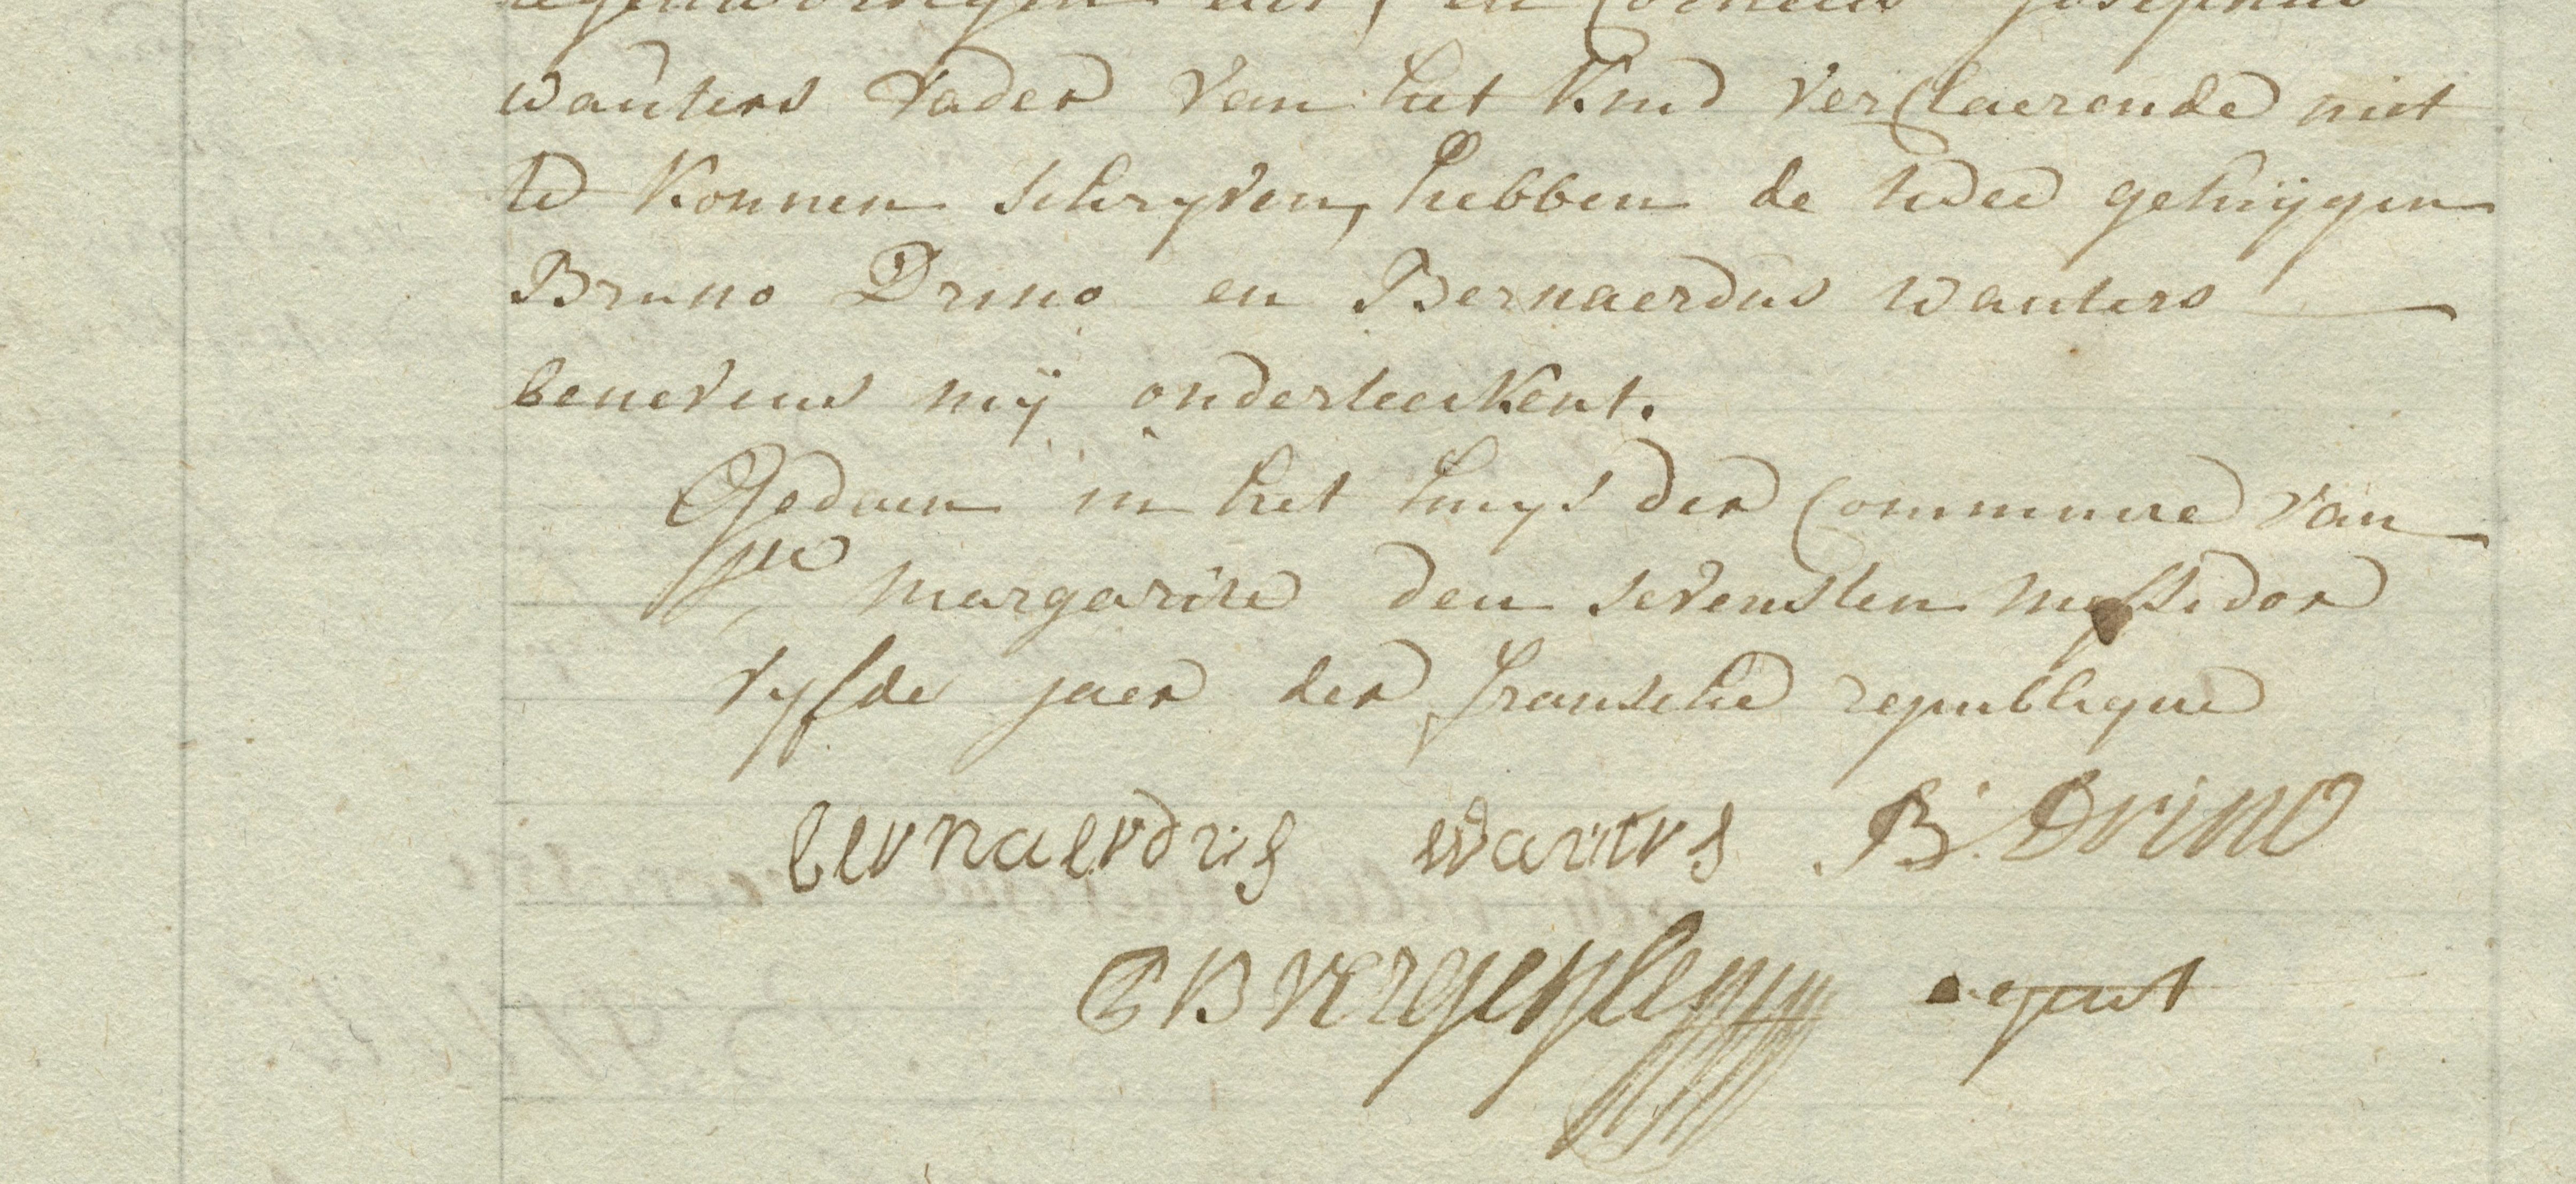 tegenwordigen act, en Cornelis Josephus
wauters vader van het kind verclaerende niet
te konnen schryven, hebben de twee getuÿgen
Bruno Drino en Bernaerdus wauters
benevens mÿ onderteekent.
Gedaen in het huys der Commune van
Ste margarite den sevensten messidor
vyfde jaer der fransche republique
bernaerdus wauters B. Drino
agent